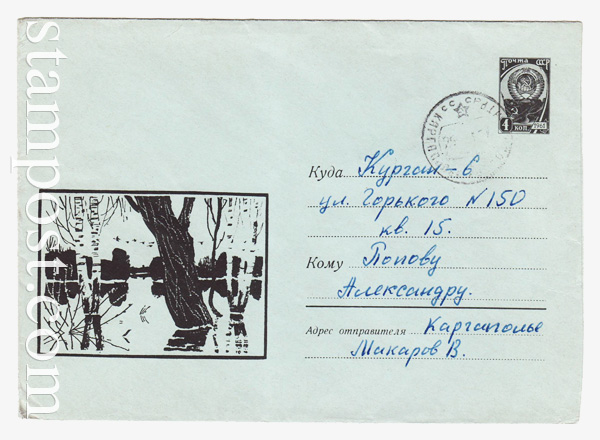 Почта СССР
4 коп. 1961
Куда Курган-6
ул. Горького N 150
кв. 15.
Кому Попову
Александру.
Адрес отправителя Каргаполье
Макаров В.
stamppost.com